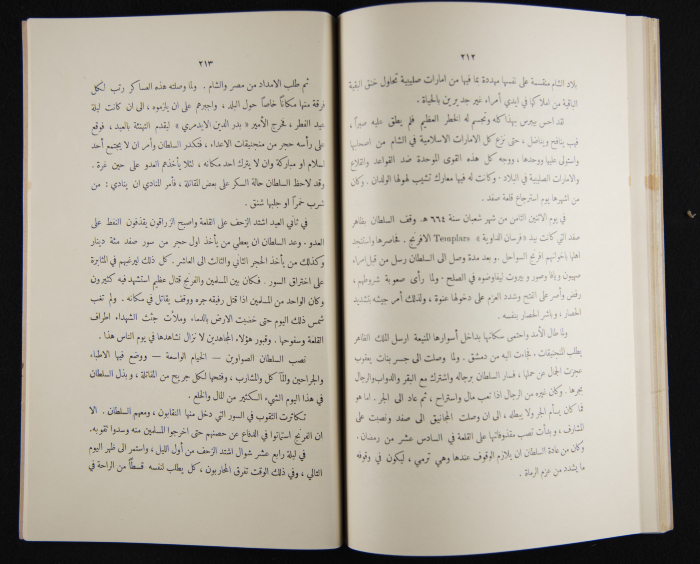 ٢١٢
بلاد الشام منقسمة على نفسها مهددة بما فيها من امارات صليبية تحاول خنق البقية
الباقية من املاكها في ايدي أمراء غير جديرين بالحياة .
لقد احس بيبرس بهذا كله وتجسم له الخطر العظيم فلم يطق عليه صبراً ،
فهب ينافح ويناضل ، حتى نزع كل الامارات الاسلامية في الشام من اصحابها
واستولى عليها ووحدها ، ووجه كل هذه القوى الموحدة ضد القواعد والقلاع
والامارات الصليبية في البلاد . وكانت له فيها معارك تشيب لهولها الولدان . وكان
من اشهرها يوم استرجاع قلعة صفد .
في يوم الاثنين الثامن من شهر شعبان سنة ٦٦٤ هـ . وقف السلطان بظاهر
صفد التي كانت بيد « فرسان الداوية » Templars الافرنج . فحاصرها واستنجد
اهلها باخوانهم افرنج السواحل . وبعد مدة وصل الى السلطان رسل من قبل امراء
صهيون ويافا وصور و بيروت ليفاوضوه في الصلح . ولما رأى صعوبة شروطهم ،
رفض وأصر على الفتح وشدد العزم على دخولها عنوة ، ولذلك أمر جيشه بتشديد
الحصار ، وباشر الحصار بنفسه .
ولما طال الأمد واحتمى سكانها بداخل أسوارها المنيعة ارسل الملك الظاهر
يطلب المنجنيقات . فجاءت اليه من دمشق . ولما وصلت الى جسر بنات يعقوب
عجزت الجمال عن حملها ، فسار السلطان برجاله واشترك مع البقر والدواب والرجال
بجرها . وكان غيره من الرجال اذا تعب مال واستراح ، ثم عاد الى الجر . اما هو
فما كان يسأم الجر ولا يبطله . الى ان وصلت المجانيق الى صفد ونصبت على
المشارف ، وبدأت تصب مقذوفاتها على القلعة في السادس عشر من رمضان .
وكان من عادة السلطان ان يلازم الوقوف عندها وهي ترمي ، ليكون في وقوفه
ما يشدد من عزم الرماة .
٢١٣
ثم طلب الامداد من مصر والشام . ولما وصلته هذه العساكر رتب لكل
فرقة منها مكاناً خاصاً حول البلد ، واجبرهم على ان يلزموه ، الى ان كانت ليلة
عيد الفطر ، فخرج الأمير « بدر الدين الايدمري » ليقدم التهنئة بالعيد ، فوقع
على رأسه حجر من منجنيقات الاعداء ، فتكدر السلطان وأمر ان لا يجتمع أحد
لسلام او مباركة وان لا يترك احد مكانه ، لئلا يأخذهم العدو على حين غرة .
وقد لاحظ السلطان حالة السكر على بعض المقاتلة ، فأمر المنادي ان ينادي : من
شرب خمراً او جلبها شنق .
في ثاني العيد اشتد الزحف على القلعة واصبح الزراقون يقذفون النفط على
العدو . وعد السلطان ان يعطي من يأخذ اول حجر من سور صفد مئة دينار
وكذلك من يأخذ الحجر الثاني والثالث الى العاشر . كل ذلك ليرغبهم في المثابرة
على اختراق السور . فكان بين المسلمين والفرنج قتال عظيم استشهد فيه كثيرون
وكان الواحد من المسلمين اذا قتل رفيقه جره ووقف يقاتل في مكانه . ولم تغب
شمس ذلك اليوم حتى خضبت الارض بالدماء وملأت جثث الشهداء اطراف
القلعة وسفوحها . وقبور هؤلاء المجاهدين لا نزال نشاهدها في يوم الناس هذا .
نصب السلطان الصواوين — الخيام الواسعة — ووضع فيها الاطباء
والجراحين والمآكل والمشارب ، وفتحها لكل جريح من المقاتلة ، وبذل السلطان
في هذا اليوم الشيء الكثير من المال والخلع .
تكاثرت الثقوب في السور التي دخل منها النقابون ، ومعهم السلطان . الا
ان الفرنج استماتوا في الدفاع عن حصنهم حتى اخرجوا المسلمين منه وسدوا ثقوبه .
في ليلة رابع عشر شوال اشتد الزحف من أول الليل ، واستمر الى ظهر اليوم
التالي ، وفي ذلك الوقت تفرق المحاربون ، كل يطلب لنفسه قسطاً من الراحة في